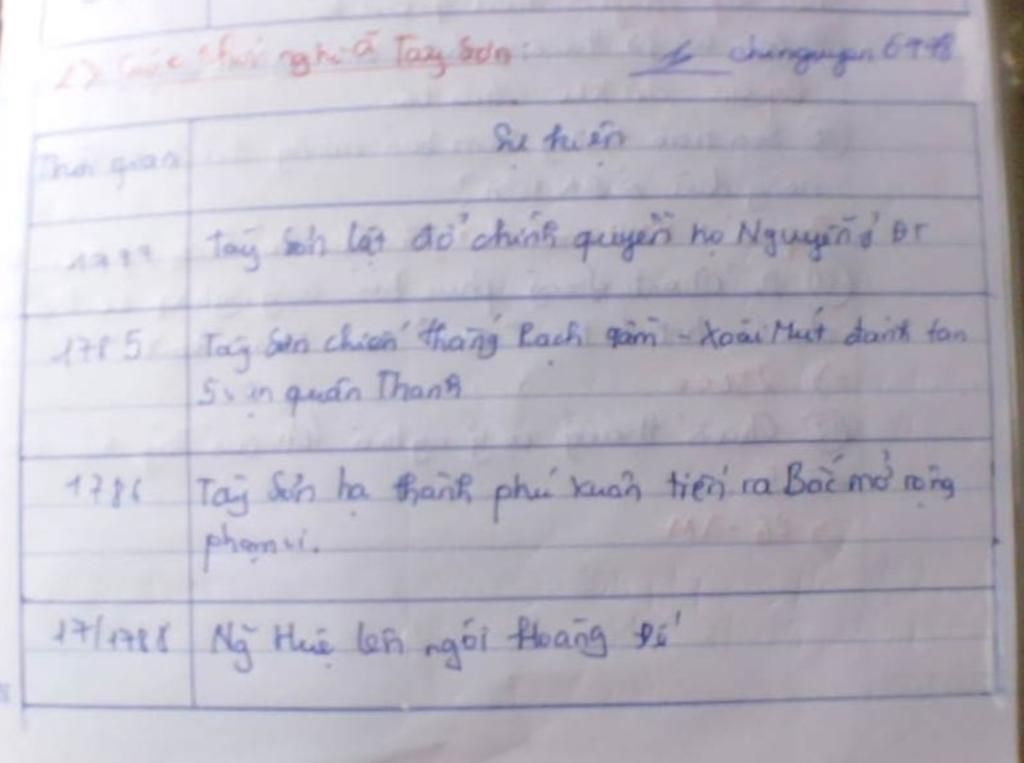 2) Cuộc khởi nghĩa Tây Sơn:
chinguyen6448
Thời gian
Sự kiện
1777
Tây Sơn lật đổ chính quyền họ Nguyễn ở ĐT
1785
Tây Sơn chiến thắng Rạch gầm - Xoài Mút đánh tan
5 vạn quân Thanh
1786
Tây Sơn hạ thành phú xuân tiến ra Bắc mở rộng
phạm vi.
17/1788
Ng Huệ lên ngôi Hoàng Đế